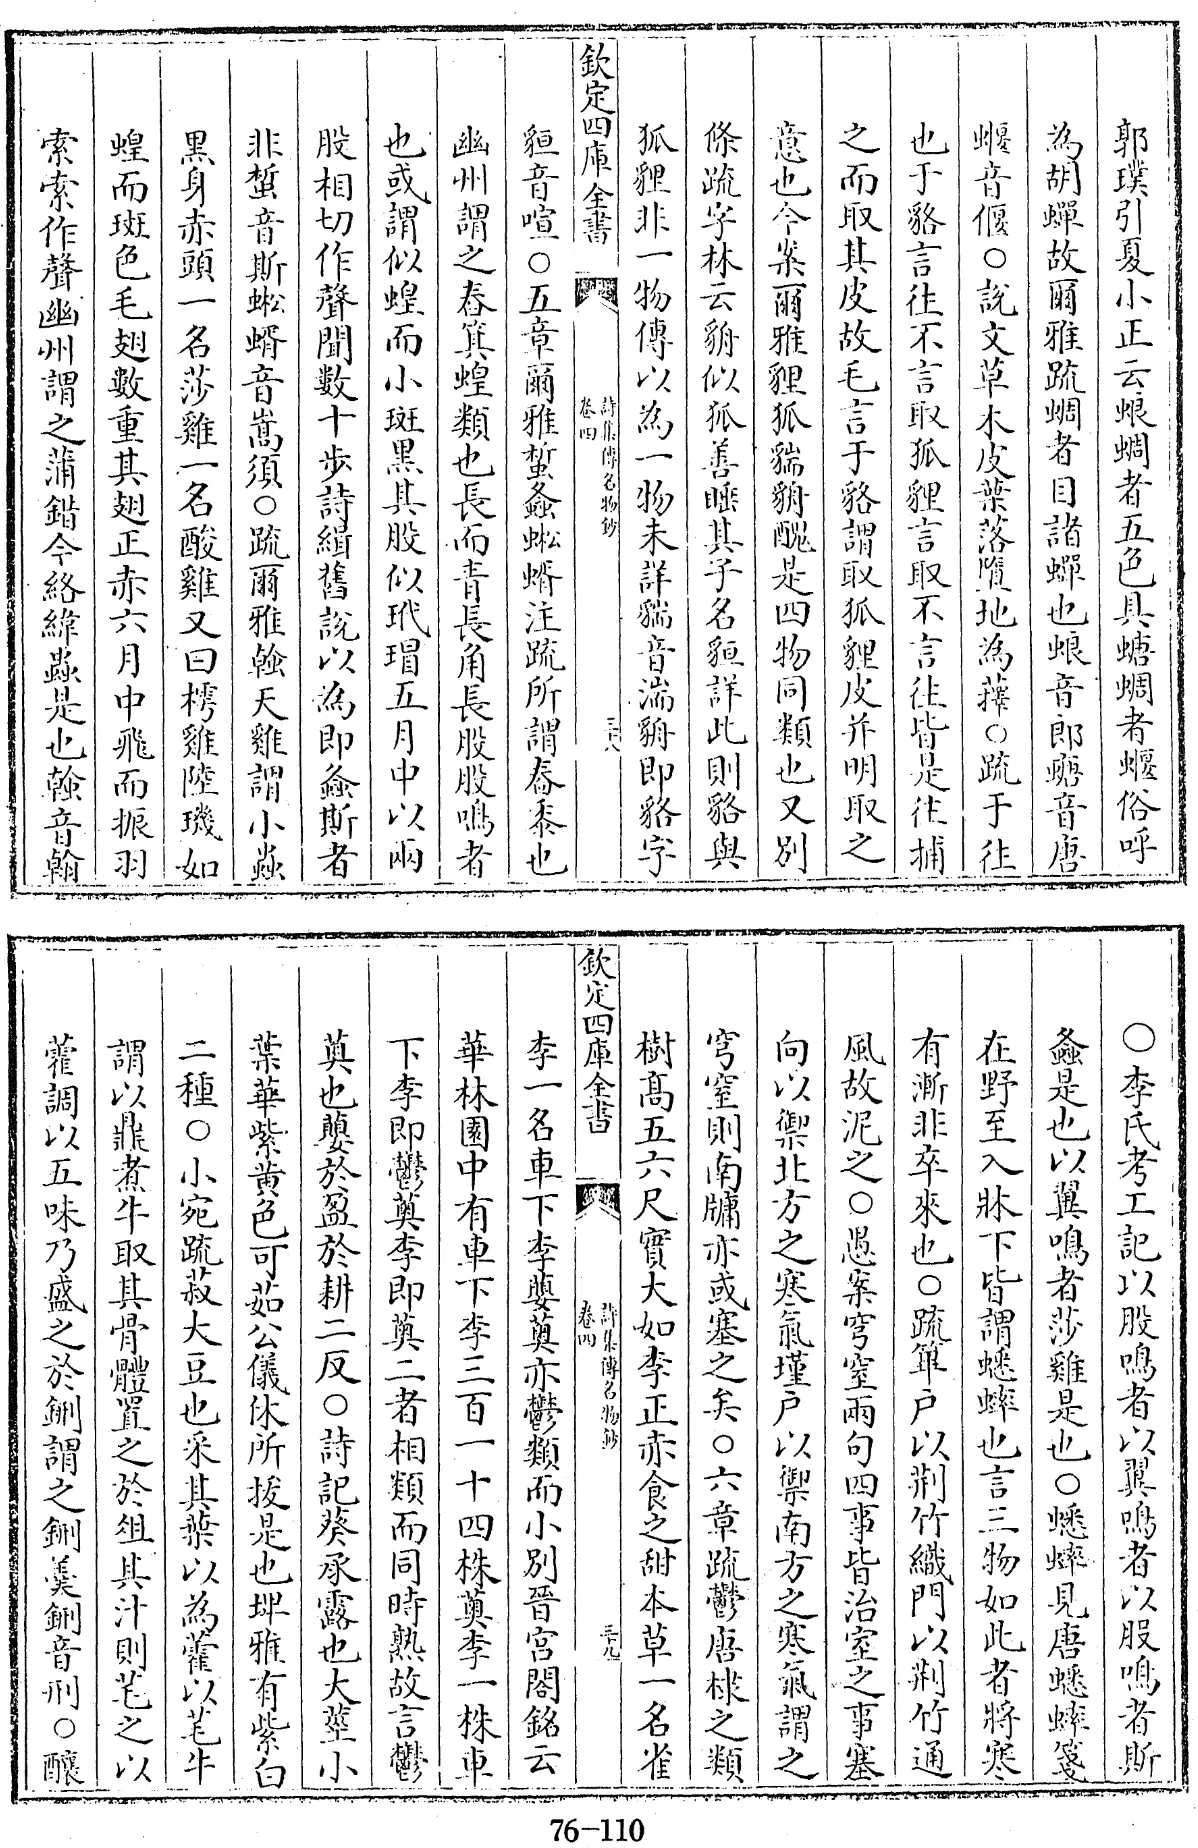 郭璞引夏小正云蜋蜩者五色具螗蜩者蝘俗呼
為胡蟬故爾雅疏蜩者目諸蟬也蜋音郎螗音唐
蝘音偃○說文草木皮葉落墮地為蘀○疏于往
也于貉言往不言取狐貍言取不言往皆是往捕
之而取其皮故毛言于貉謂取狐貍皮并明取之
意也今案爾雅貍狐貒貈醜是四物同類也又別
條疏字林云貈似狐善睡其子名貆詳此則貉與
狐貍非一物傳以為一物未詳貒音湍貈即貉字
欽定四庫全書
詩集傳名物鈔
卷四
三十八
貆音喧○五章爾雅蜇螽蜙蝑注疏所謂舂黍也
幽州謂之舂箕蝗類也長而青長角長股股鳴者
也或謂似蝗而小斑黑其股似玳瑁五月中以兩
股相切作聲聞數十步詩緝舊說以為即螽斯者
非蜇音斯蜙蝑音嵩須○疏爾雅螒天雞謂小蟲
黑身赤頭一名莎雞一名酸雞又曰樗雞陸璣如
蝗而斑色毛翅數重其翅正赤六月中飛而振羽
索索作聲幽州謂之蒲錯今絡緯蟲是也螒音翰
○李氏考工記以股鳴者以翼鳴者以股鳴者斯
螽是也以翼鳴者莎雞是也○蟋蟀見唐蟋蟀箋
在野至入牀下皆謂蟋蟀也言三物如此者將寒
有漸非卒來也○疏篳戶以荆竹織門以荆竹通
風故泥之○愚案穹窒兩句四事皆治室之事塞
向以禦北方之寒氣墐户以禦南方之寒氣謂之
穹窒則南牖亦或塞之矣○六章疏鬱唐棣之類
樹高五六尺實大如李正赤食之甜本草一名雀
欽定四庫全書
詩集傳名物鈔
卷四
三十九
李一名車下李薁薁亦鬱類而小別晉宮閣銘云
華林園中有車下李三百一十四株薁李一株車
下李即鬱薁李即薁二者相類而同時熟故言鬱
薁也蘡於盈於耕二反○詩記葵承露也大莖小
葉華紫黄色可茹公儀休所拔是也埤雅有紫白
二種○小宛疏菽大豆也采其葉以為藿以芼牛
謂以鼎煮牛取其骨體置之於俎其汁則芼之以
藿調以五味乃盛之於鉶謂之鉶羮鉶音刑○釀
76-110